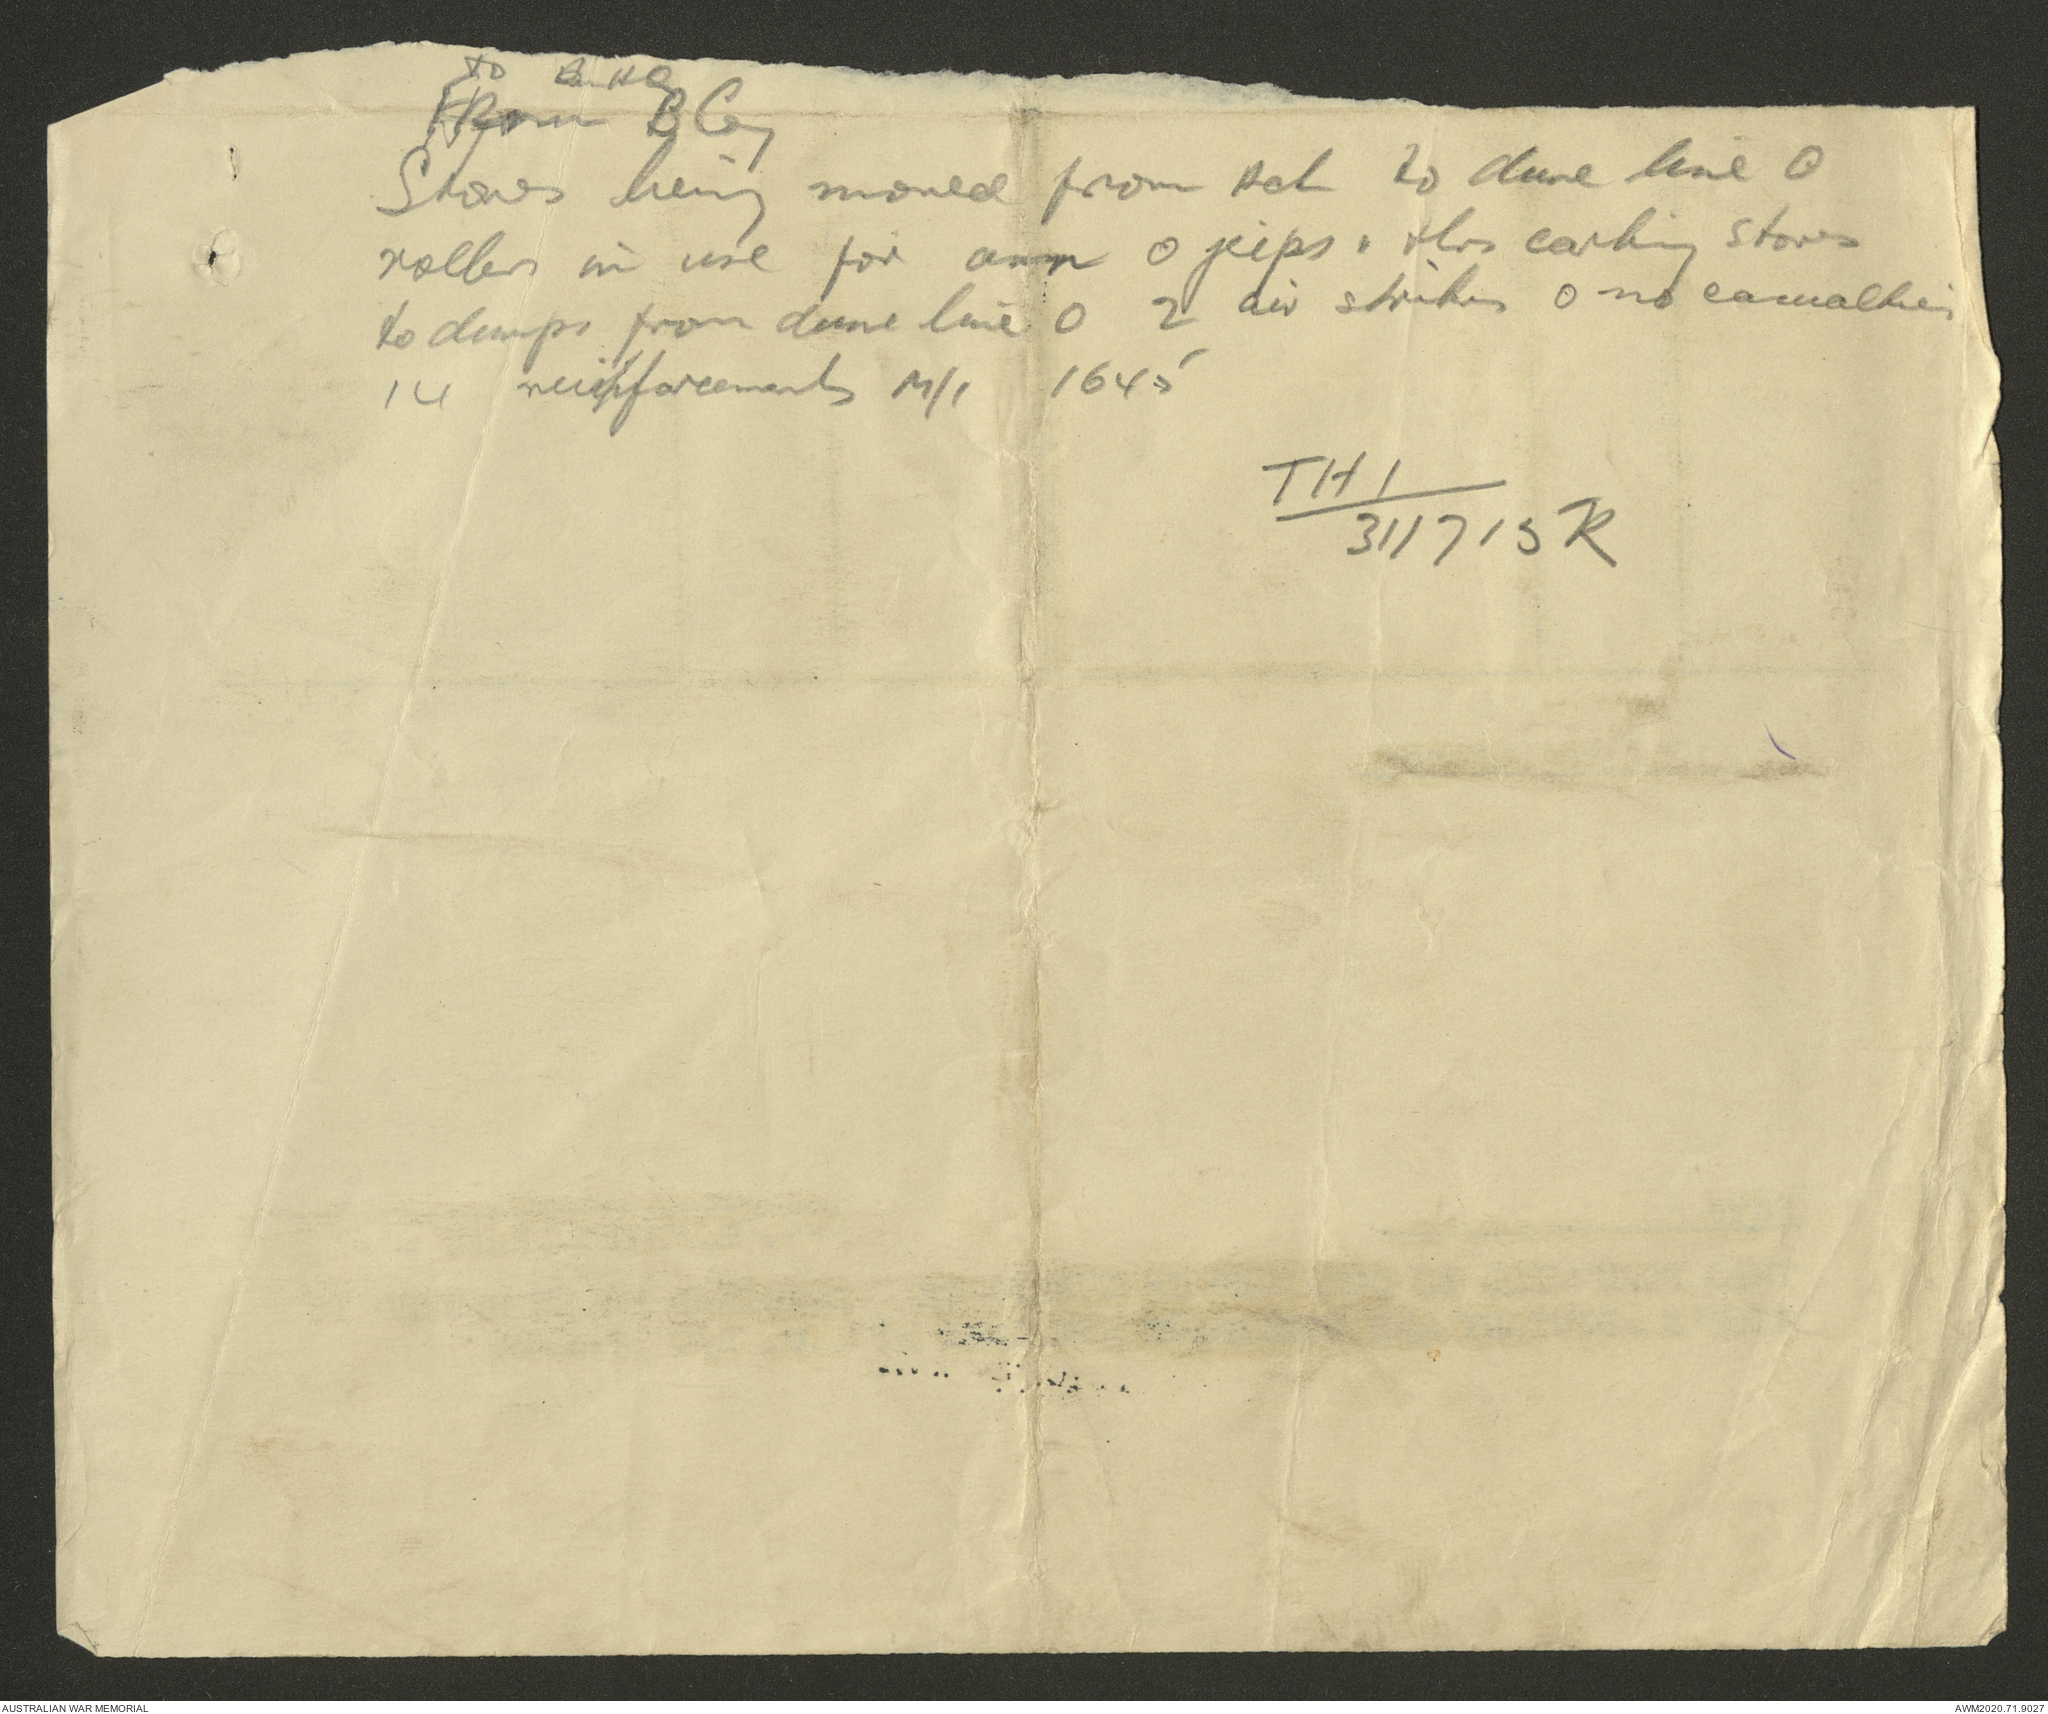 to Bn HQ
From B Coy
Stores being moved from bch to dune line O
rollers in use for amn O jeeps + tlrs carting stores
to dumps from dune line O 2 air strikes O no casualties
14 reinforcements M/I 1645
TH1
311715 K
AUSTRALIAN WAR MEMORIAL
AWM2020.71.9027